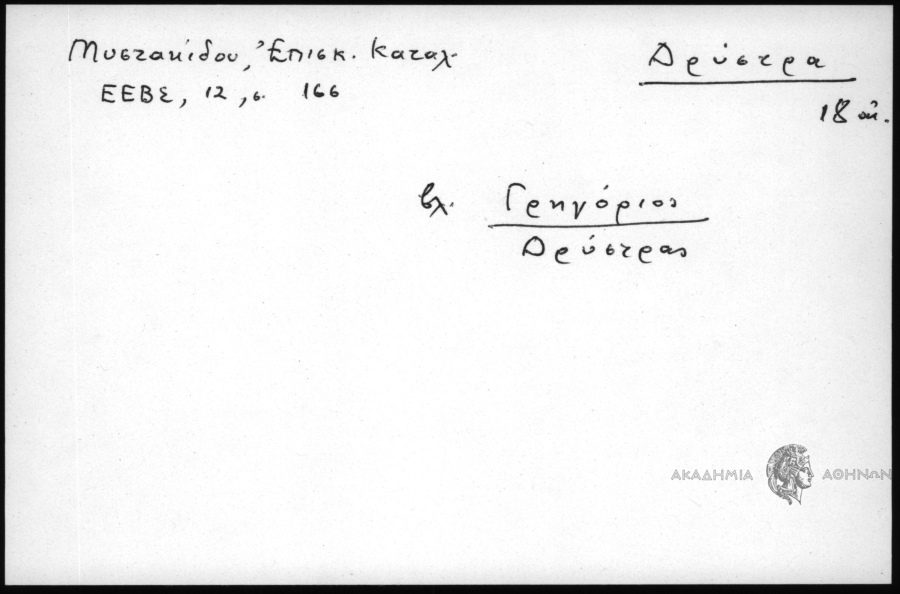 Μυστακίδου, Ἐπισκ. Καταλ.
ΕΕΒΣ, 12, σ. 166
Δρύστρα
18 αἰ.
βλ. Γρηγόριος
Δρύστρας
ΑΚΑΔΗΜΙΑ ΑΘΗΝΩΝ